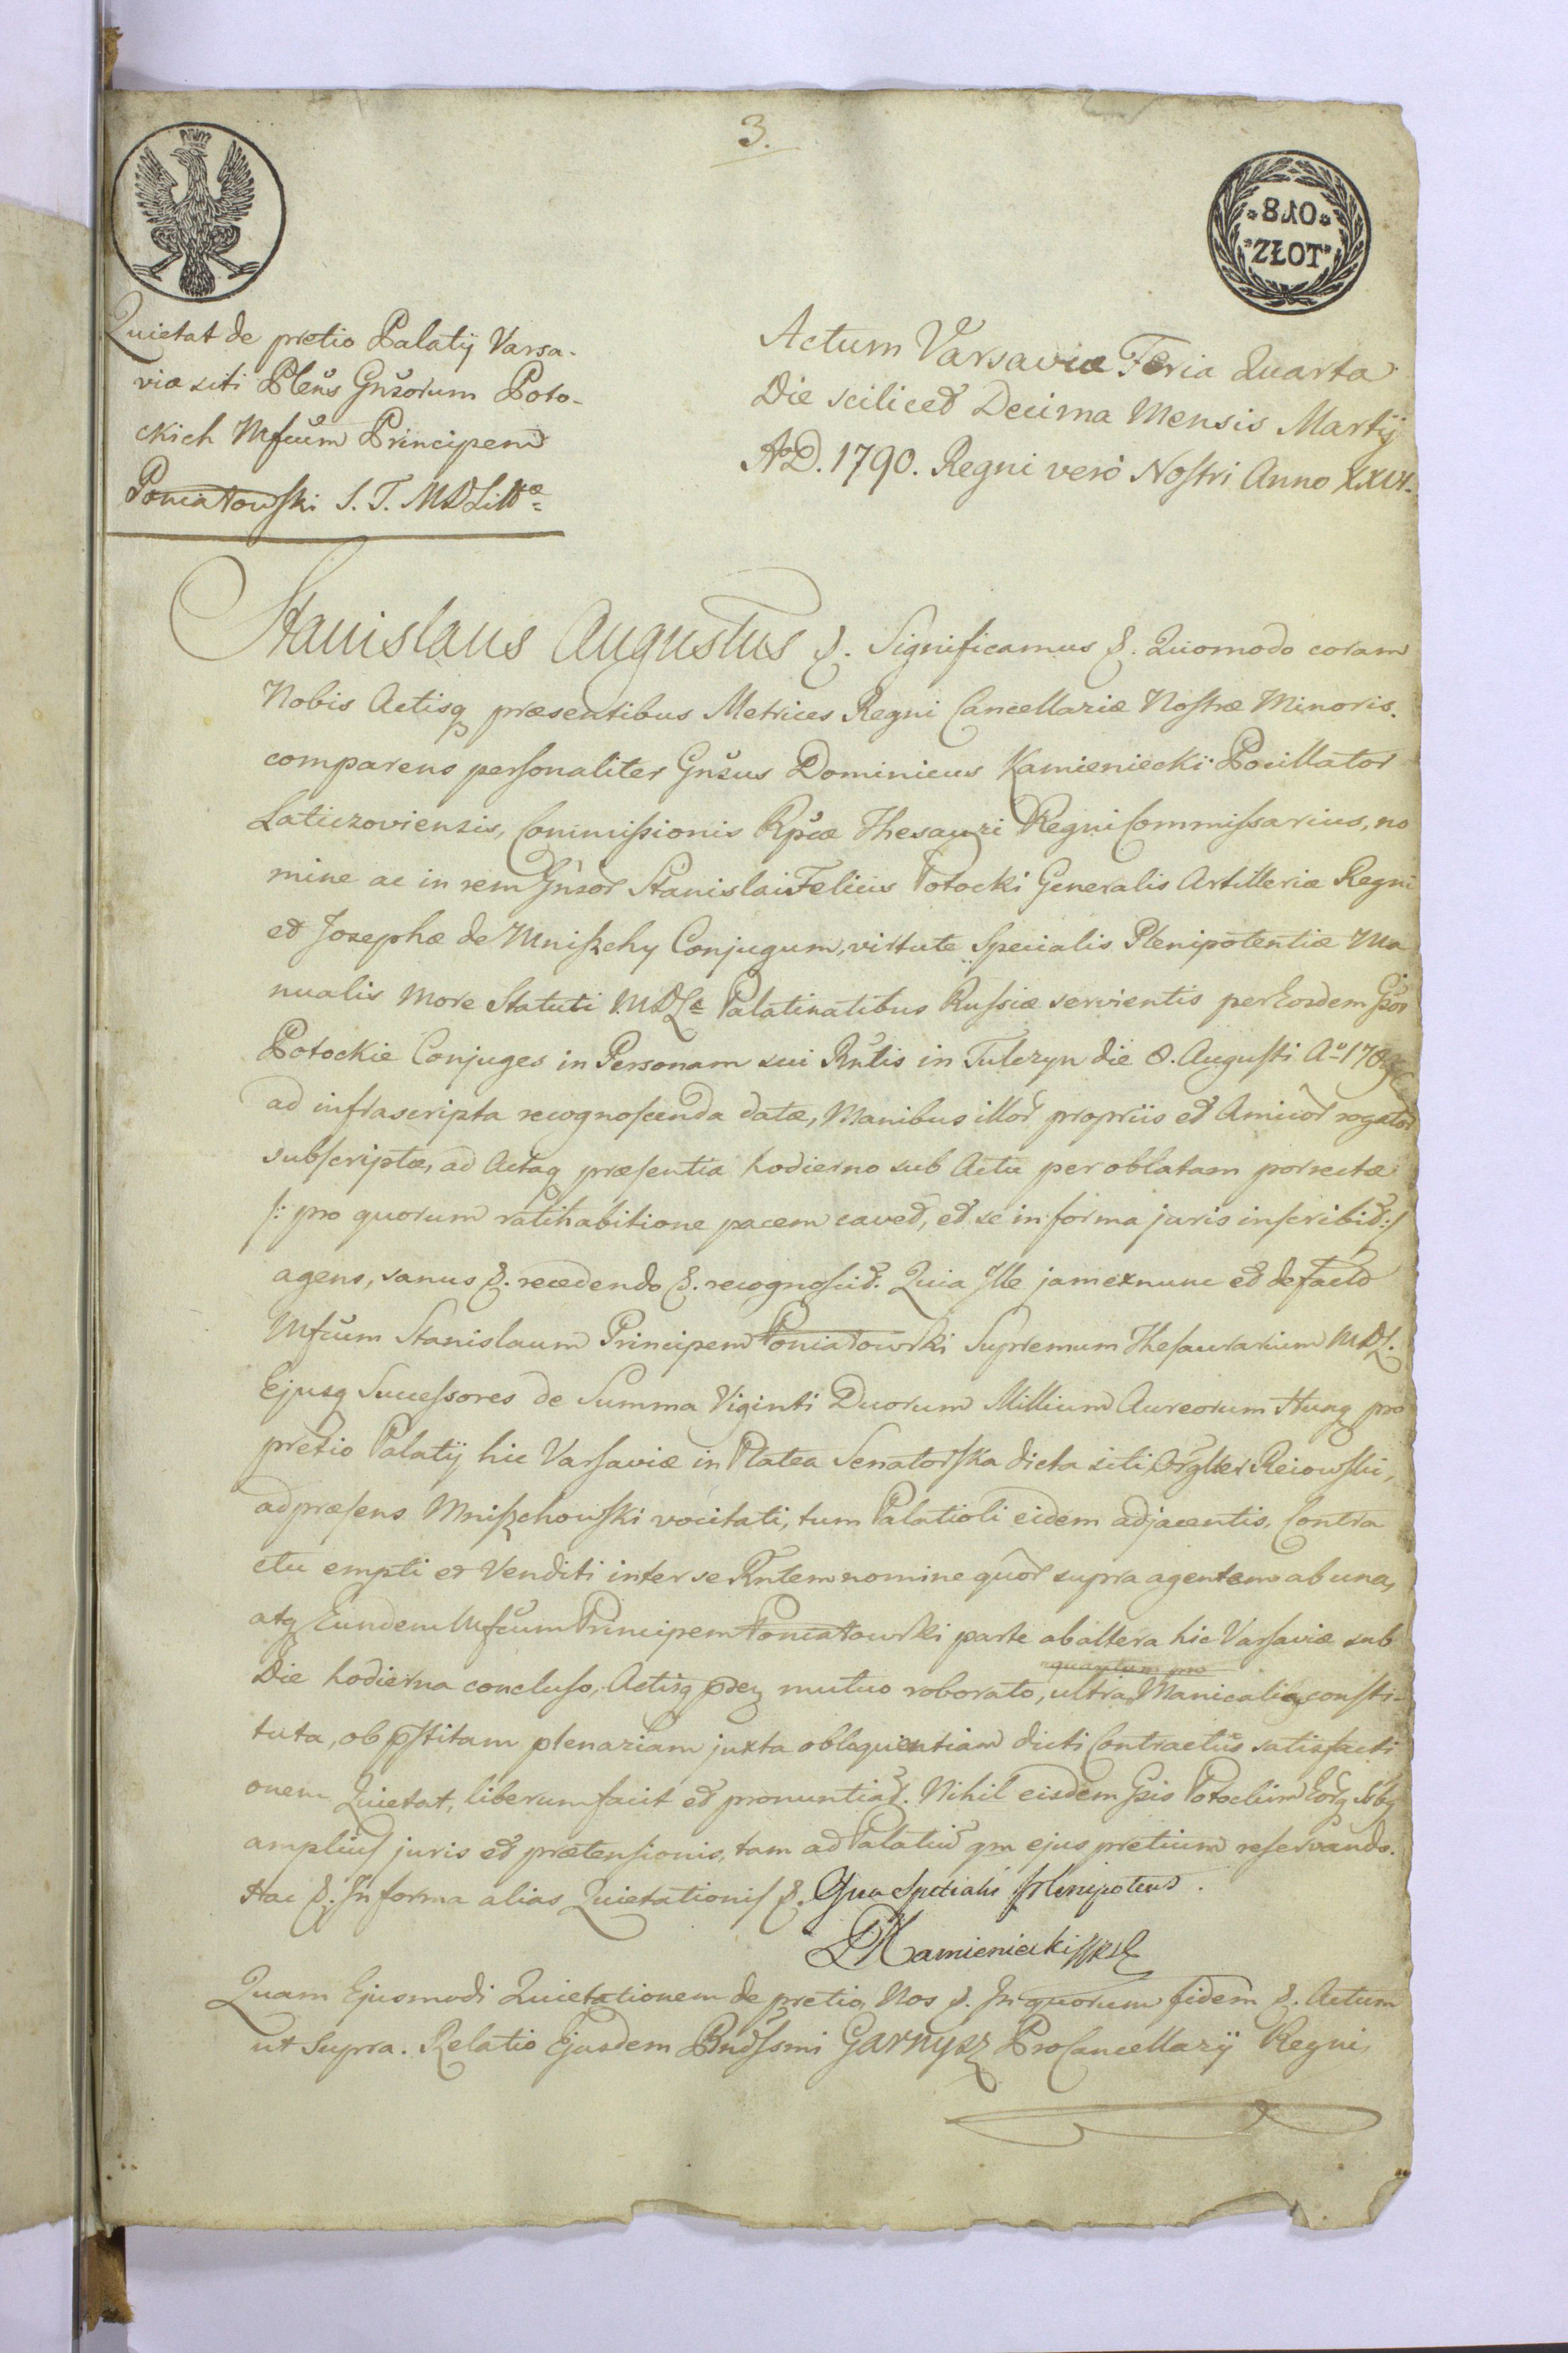 3.
810
ZŁOT
Quietat de pretio Palatij Varsa-
viæ siti Plens Gnsorum Poto-
ckich Mfcum Principem
Poniatowski S. T. MDLittæ
Actum Varsaviæ Feria Quarta
Die scilicet Decima Mensis Martij
AD. 1790. Regni vero Nostri Anno
Stanislaus Augustus &. Significamus &. Quomodo coram
Nobis Actisq præsentibus Metrices Regni Cancellariæ Nostræ Minoris.
comparens personaliter Gnsus Dominicus Kamieniecki Pocillator
Laticzoviensis, Commissionis Rpcæ Thesauri Regni Commissarius, no
mine ac in rem Gnsor Stanislai Felicis Potocki Generalis Artilleriæ Regni
et Josephæ de Mniszchy Conjugum, virtute Specialis Plenipotentiæ Ma
nualis More Statuti MDL Palatinatibus Russiæ servientis per Eosdem Gsos
Potockie Conjuges in Personam sui Rntis in Tulczyn die 8. Augusti Ao
ad infrascripta recognoscenda datæ, Manibus illor propriis et Amicor rogator
subscriptæ, ad Actaq præsentia hodierno sub Actu per oblatam porrectæ
/: pro quorum ratihabitione pacem cavet, et se in forma juris inscribit :/
agens, sanus &. recedendo &. recognoscit. Quia Ille jam ex nunc et de facto
Mfcum Stanislaum Principem Poniatowski Supremum Thesaurarium MDL.
Ejusq Successores de Summa Viginti Duorum Millium Aureorum Hung pro
pretio Palatij hic Varsaviæ in Platea Senatorska dicta siti Reiowski,
ad præsens Mniszchowski vocitati, tum Palatioli eidem adjacentis, Contra
ctu empti et Venditi inter se Rntem nomine quor supra agentem ab una,
atq Eundem Mfcum Principem Poniatowski parte ab altera hic Varsaviæ sub
quantum pro
Die hodierna concluso, Actisq mutuo roborato, ultra Manicalia consti-
tuta, ob pstitam plenariam juxta obloquentiam dicti Contractus satisfacti
onem Quietat, liberum facit et pronuntiat. Nihil eisdem Gsis Potockim
amplius juris et prætensionis, tam ad Palatiu qm ejus pretium reservando.
Hac &. In forma alias Quietationis &. Qua Specialis Plenipotens.
DKamieniecki
Quam Ejusmodi Quietationem de pretio, Nos &. In quorum fidem &. Actum
ut Supra. Relatio Ejusdem Garnysz ProCancellarij Regni,